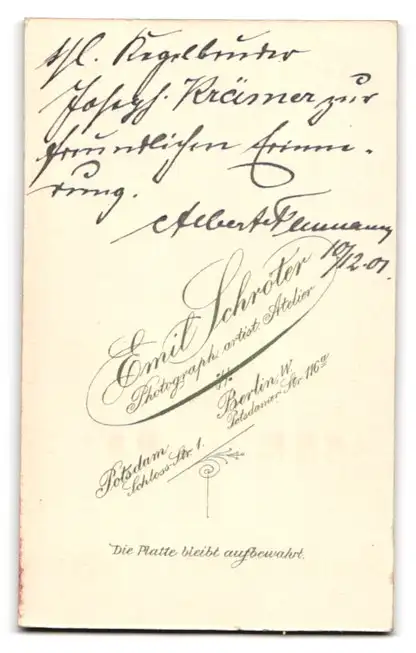 Kegelbruder
Joseph Krämer zur
freundlichen Erinne-
rung.
Albert
10/12.01.
Emil Schröter
Photograph. artist. Atelier
Berlin W.
Potsdamer-Str. 116a
Potsdam
Schloss-Str. 1.
Die Platte bleibt aufbewahrt.